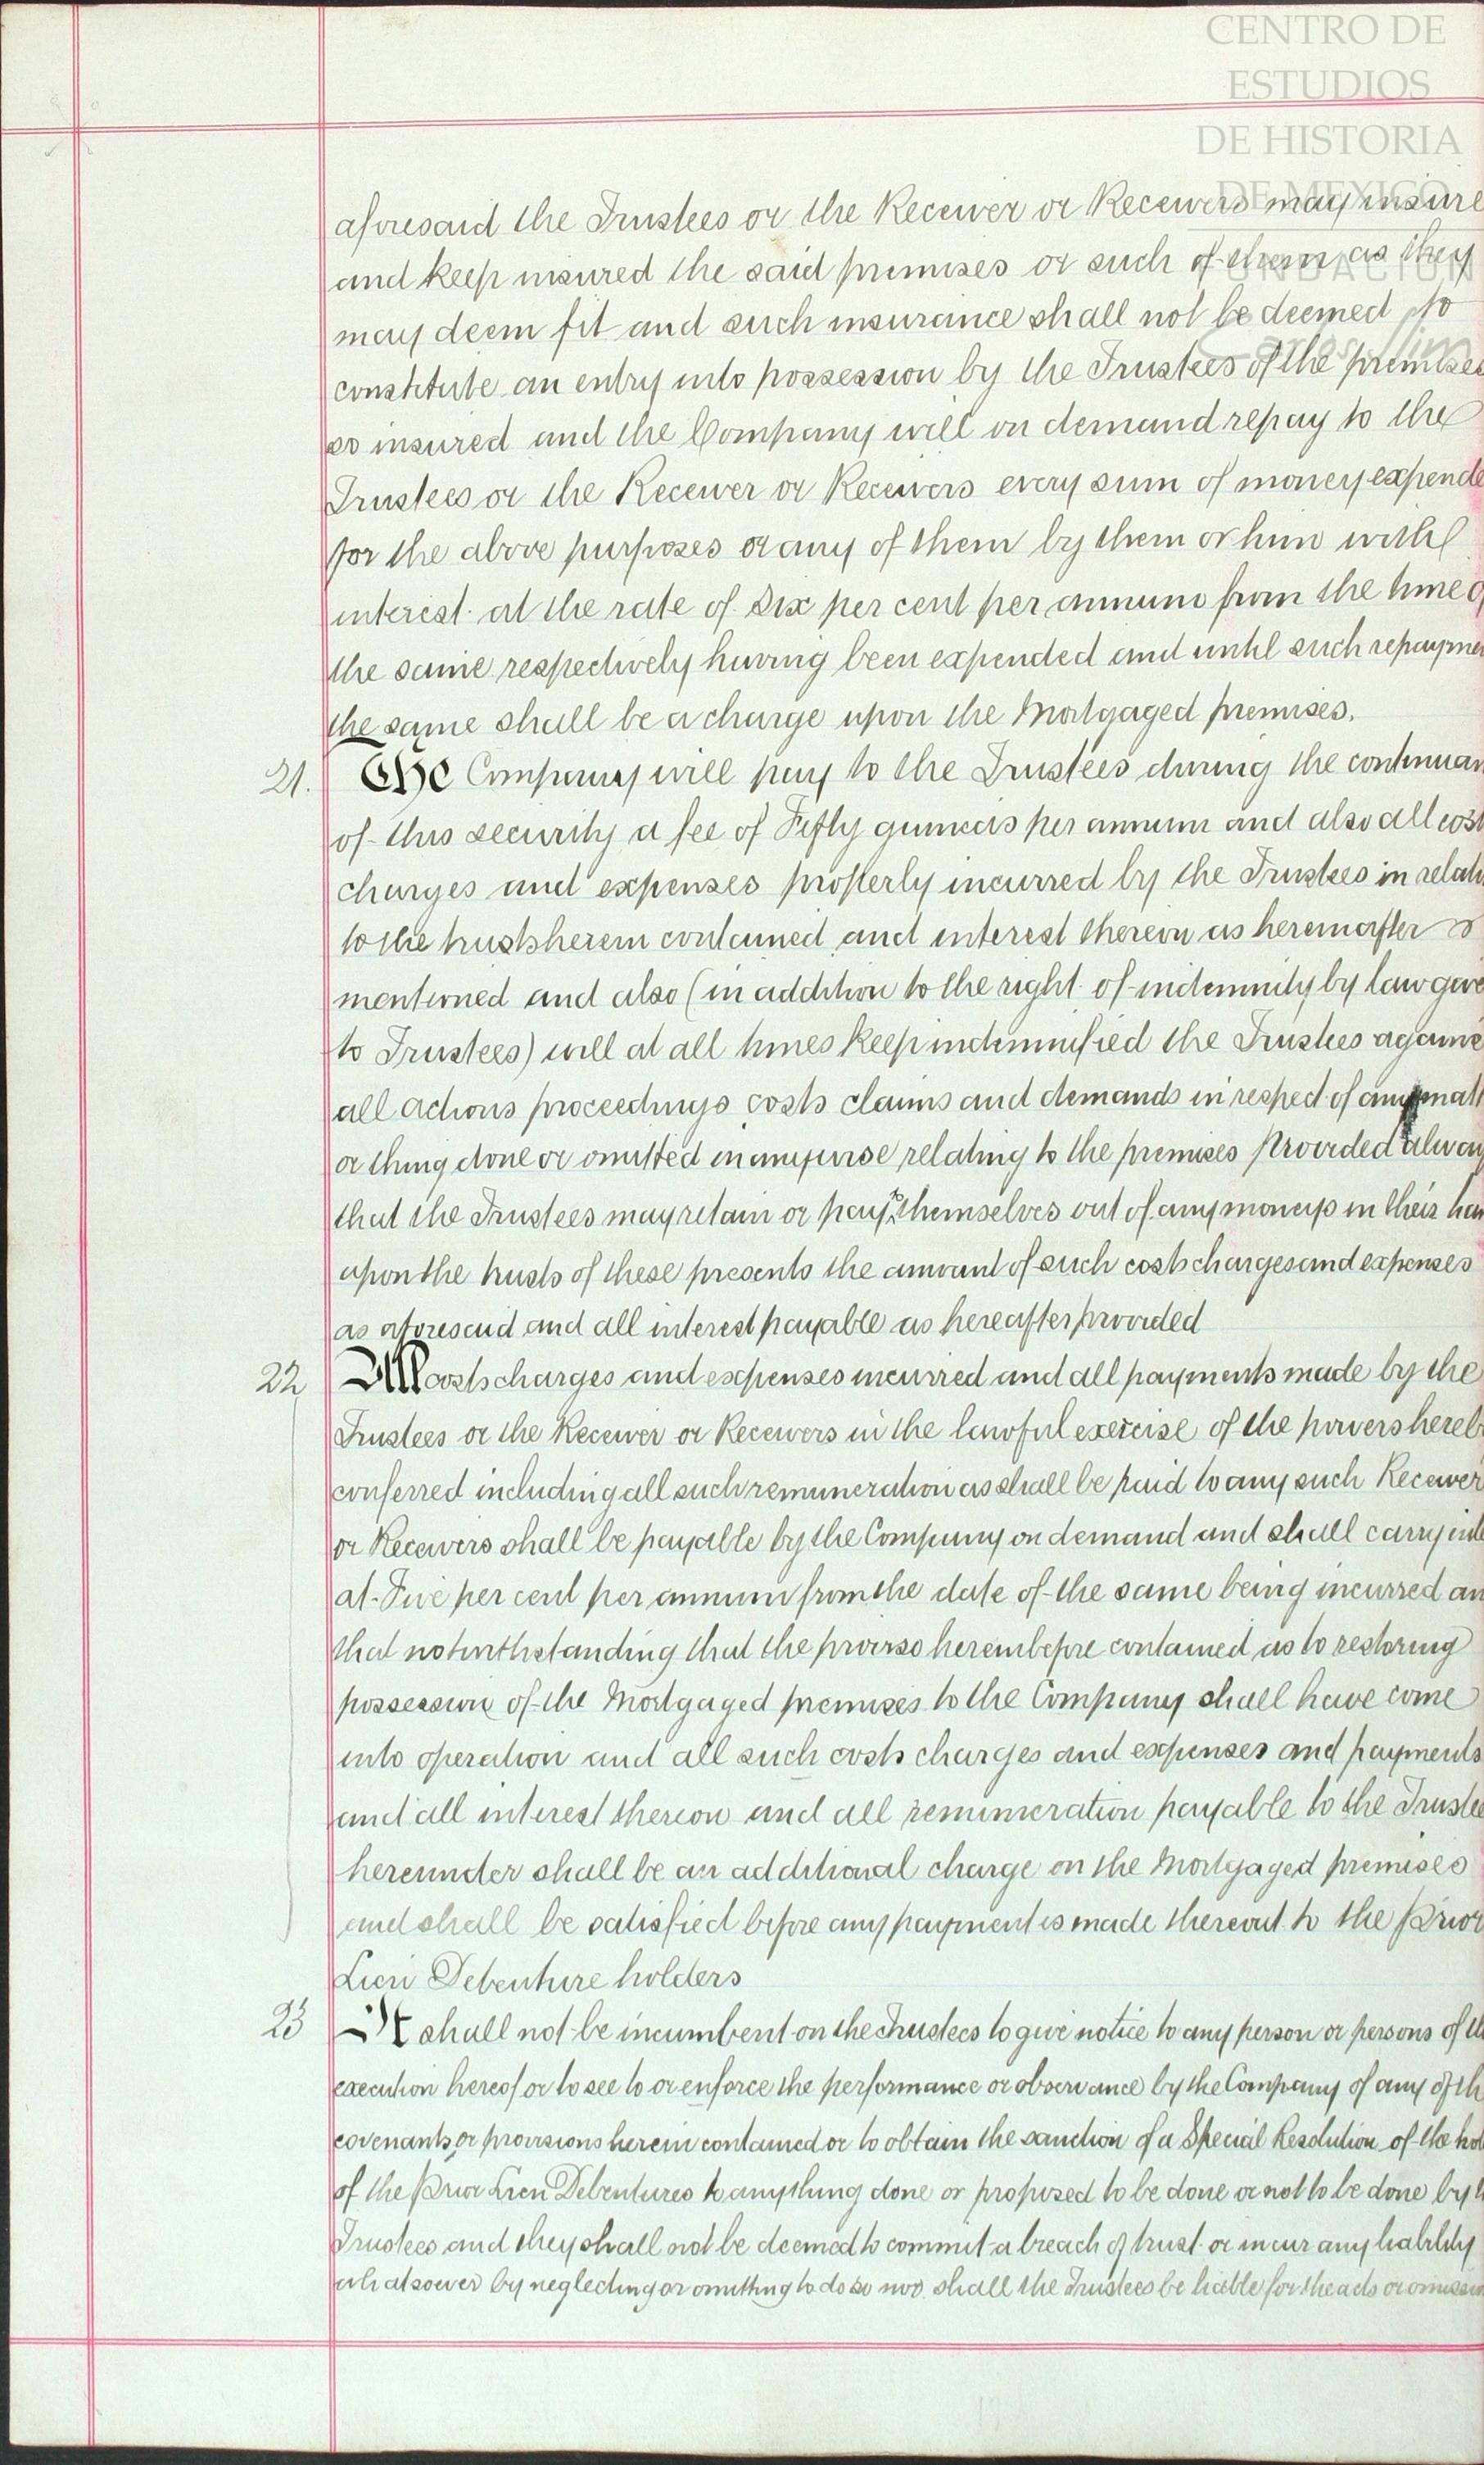 CENTRO DE
ESTUDIOS
DE HISTORIA
DE MEXICO
FUNDACION
Carlos Slim
aforesaid the Trustees or the Receiver or Receivers may insure
and keep insured the said premises or such of them as they
may deem fit and such insurance shall not be deemed to
constitute an entry into possession by the Trustees of the premises
so insured and the Company will on demand repay to the
Trustees or the Receiver or Receivers every sum of money expende
for the above purposes or any of them by them or him with
interest at the rate of Six per cent per annum from the time o
the same respectively having been expended and until such repaymen
the same shall be a charge upon the Mortgaged premises.
21. The Company will pay to the Trustees during the continuan
of this security a fee of Fifty guineas per annum and also all cost
charges and expenses properly incurred by the Trustees in relati
to the trusts herein contained and interest thereon as hereinafter
mentioned and also (in addition to the right of indemnity by law give
to Trustees) will at all times keep indemnified the Trustees agains
all actions proceedings costs claims and demands in respect of any matt
or thing done or omitted in anywise relating to the premises Provided alway
that the Trustees may retain or pay to themselves out of any moneys in their han
upon the trusts of these presents the amount of such costs charges and expenses
as aforesaid and all interest payable as hereafter provided
22 All costs charges and expenses incurred and all payments made by the
Trustees or the Receiver or Receivers in the lawful exercise of the powers hereb
conferred including all such remuneration as shall be paid to any such Receiver
or Receivers shall be payable by the Company on demand and shall carry inte
at Five per cent per annum from the date of the same being incurred an
that notwithstanding that the proviso hereinbefore contained as to restoring
possession of the Mortgaged premises to the Company shall have come
into operation and all such costs charges and expenses and payments
and all interest thereon and all remuneration payable to the Trustee
hereunder shall be an additional charge on the Mortgaged premises
and shall be satisfied before any payment is made thereout to the Prior
Lien Debenture holders
23 It shall not be incumbent on the Trustees to give notice to any person or persons of th
execution hereof or to see to or enforce the performance or observance by the Company of any of th
covenants or provisions herein contained or to obtain the sanction of a Special Resolution of the hol
of the Prior Lien Debentures to anything done or proposed to be done or not to be done by t
Trustees and they shall not be deemed to commit a breach of trust or incur any liability
whatsoever by neglecting or omitting to do so nor shall the Trustees be liable for the acts or omissio